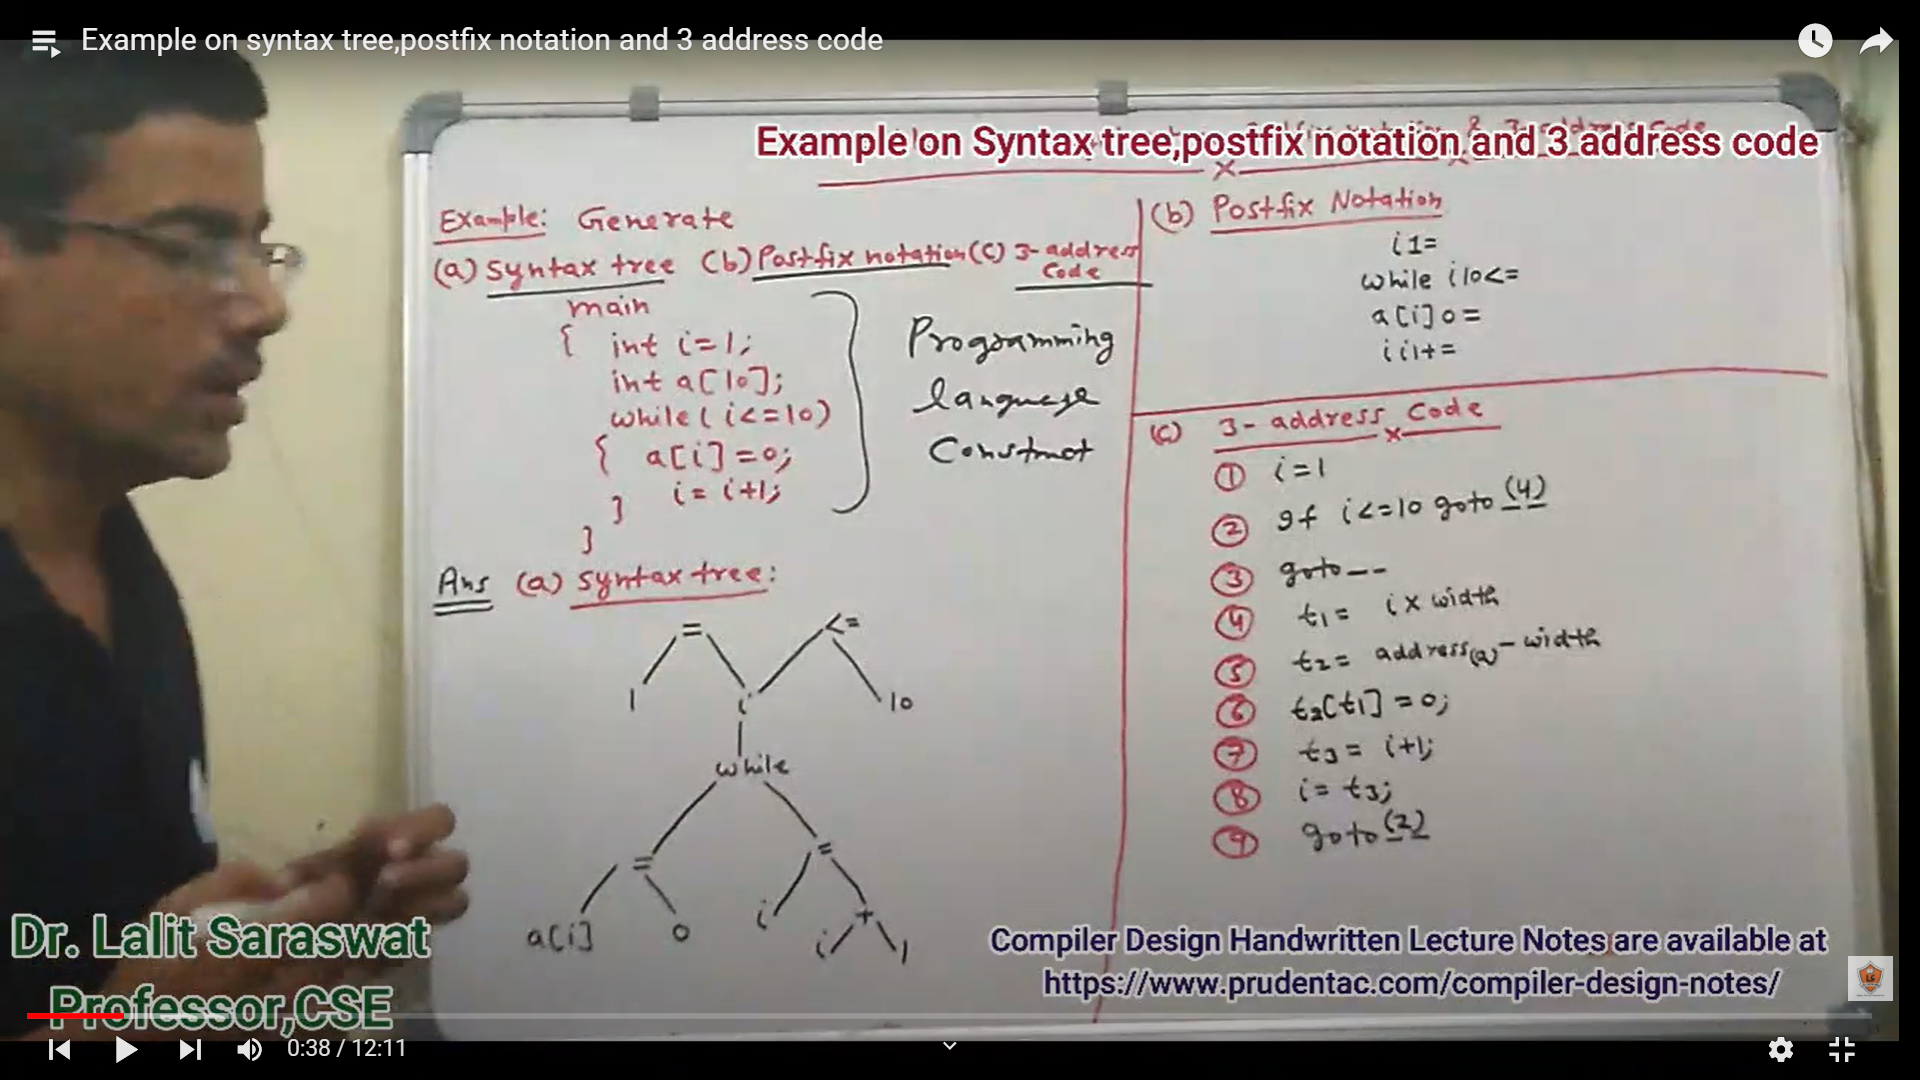 Example on syntax tree,postfix notation and 3 address code
Example on Syntax tree,postfix notation and 3 address code
Example: Generate
(a) Syntax tree (b) Postfix notation (c) 3-address Code
main
{ int i=1;
int a[10];
while( i<=10)
{ a[i]=0;
i= i+1;
}
}
Programming
language
Construct
Ans (a) Syntax tree:
= <=
1 i 10
while
= =
a[i] 0 i +
i 1
(b) Postfix Notation
i1=
while i10<=
a[i]0=
ii1+=
(c) 3-address Code
1 i=1
2 If i<=10 goto (4)
3 goto --
4 t1= i x width
5 t2= address(a)-width
6 t2[t1] =0;
7 t3= i+1;
8 i= t3;
9 goto (2)
Dr. Lalit Saraswat
Professor,CSE
Compiler Design Handwritten Lecture Notes are available at
https://www.prudentac.com/compiler-design-notes/
0:38 / 12:11